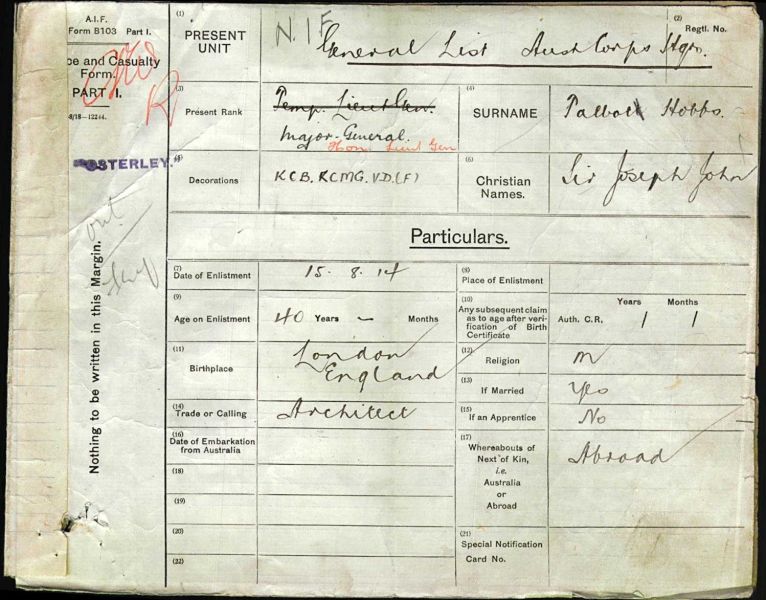 A.I.F.
Form B103 Part I.
ce and Casualty
Form.
PART I.
8/18—12244.
R
OSTERLEY.
out
Nothing to be written in this Margin.
N.I.F
(1) PRESENT UNIT General List Aust Corps Hqrs.
(2) Regtl. No.
(3) Present Rank Temp. Lieut Gen.
Major-General.
Hon. Lieut Gen
(4) SURNAME Talbot Hobbs.
(5) Decorations KCB. KCMG. V.D.(F)
(6) Christian Names. Sir Joseph John
Particulars.
(7) Date of Enlistment 15. 8. 14
(8) Place of Enlistment
(9) Age on Enlistment 40 Years — Months
(10) Any subsequent claim as to age after verification of Birth Certificate Auth. C.R. Years / Months /
(11) Birthplace London
England
(12) Religion M
(13) If Married Yes
(14) Trade or Calling Architect
(15) If an Apprentice No
(16) Date of Embarkation from Australia
(17) Whereabouts of Next of Kin, i.e. Australia or Abroad Abroad
(18)
(19)
(20)
(21) Special Notification Card No.
(22)